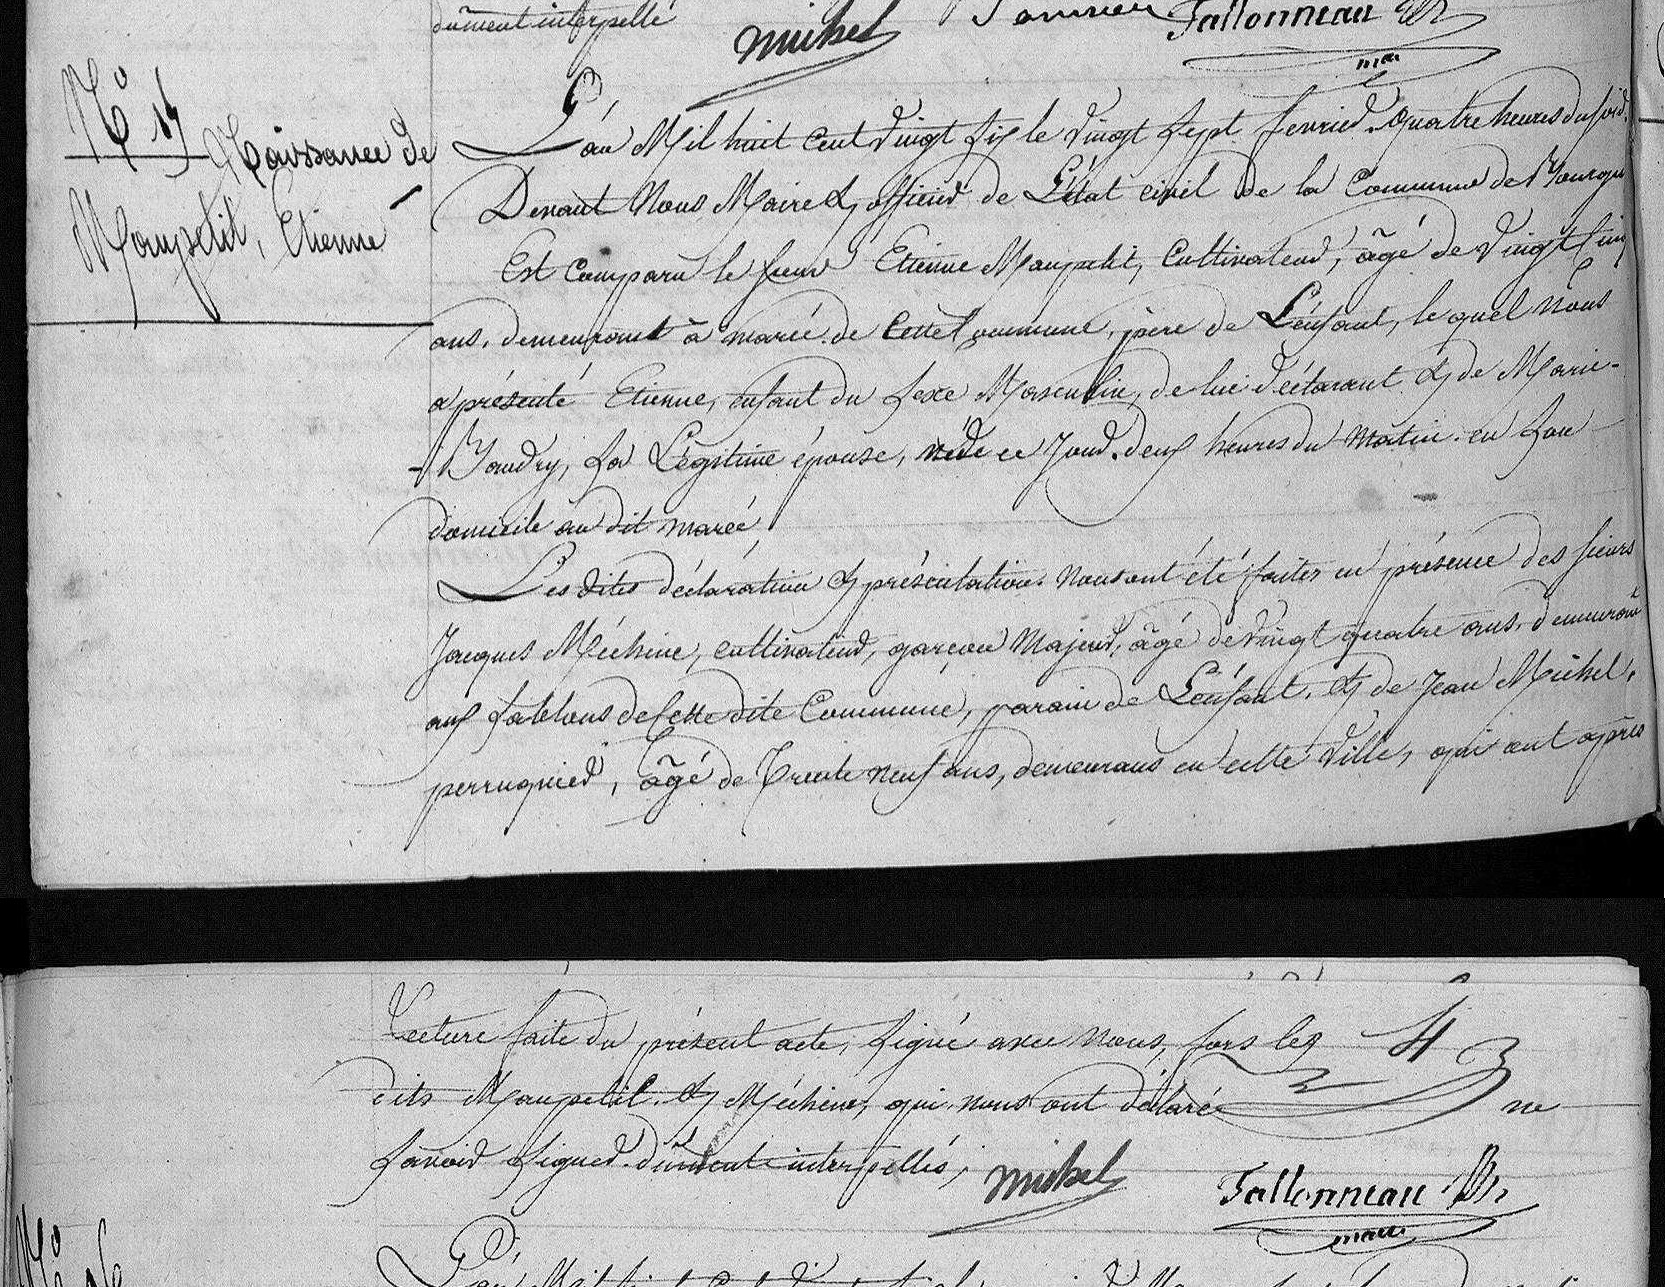 dûment interpellé
Michel Tallonneau
N° 15 Naissance de
Maupetit, Etienne
L'an Mil huit cent vingt six le vingt sept février quatre heures du soir.
Devant Nous Maire & officier de L'état civil de la Commune de
Est comparu le sieur Etienne Maupetit, Cultivateur, âgé de vingt cinq
ans, demeurant à marcé de cette Commune, père de L'enfant, lequel nous
a présenté Etienne, enfant du sexe Masculin, de lui déclarant & de Marie-
Baudry, sa Légitime épouse, né de ce jour deux heures du matin en son
domicile au dit marcé,
Les dites déclaration & présentation nous ont été faites en présence des sieurs
Jacques Méchine, cultivateur, garçon Majeur, âgé de vingt quatre ans, demeurant
aux Sablons de Cette dite Commune, parain de L'enfant, & de Jean Michel,
perruquier, âgé de Trente neuf ans, demeurans en cette ville, qui ont après
Lecture faite du présent acte, signé avec nous, fors les
dits Maupetit & Méchine, qui nous ont déclaré ne
savoir signer dûment interpellés,
Michel Tallonneau
maire
N°
L'an Mil